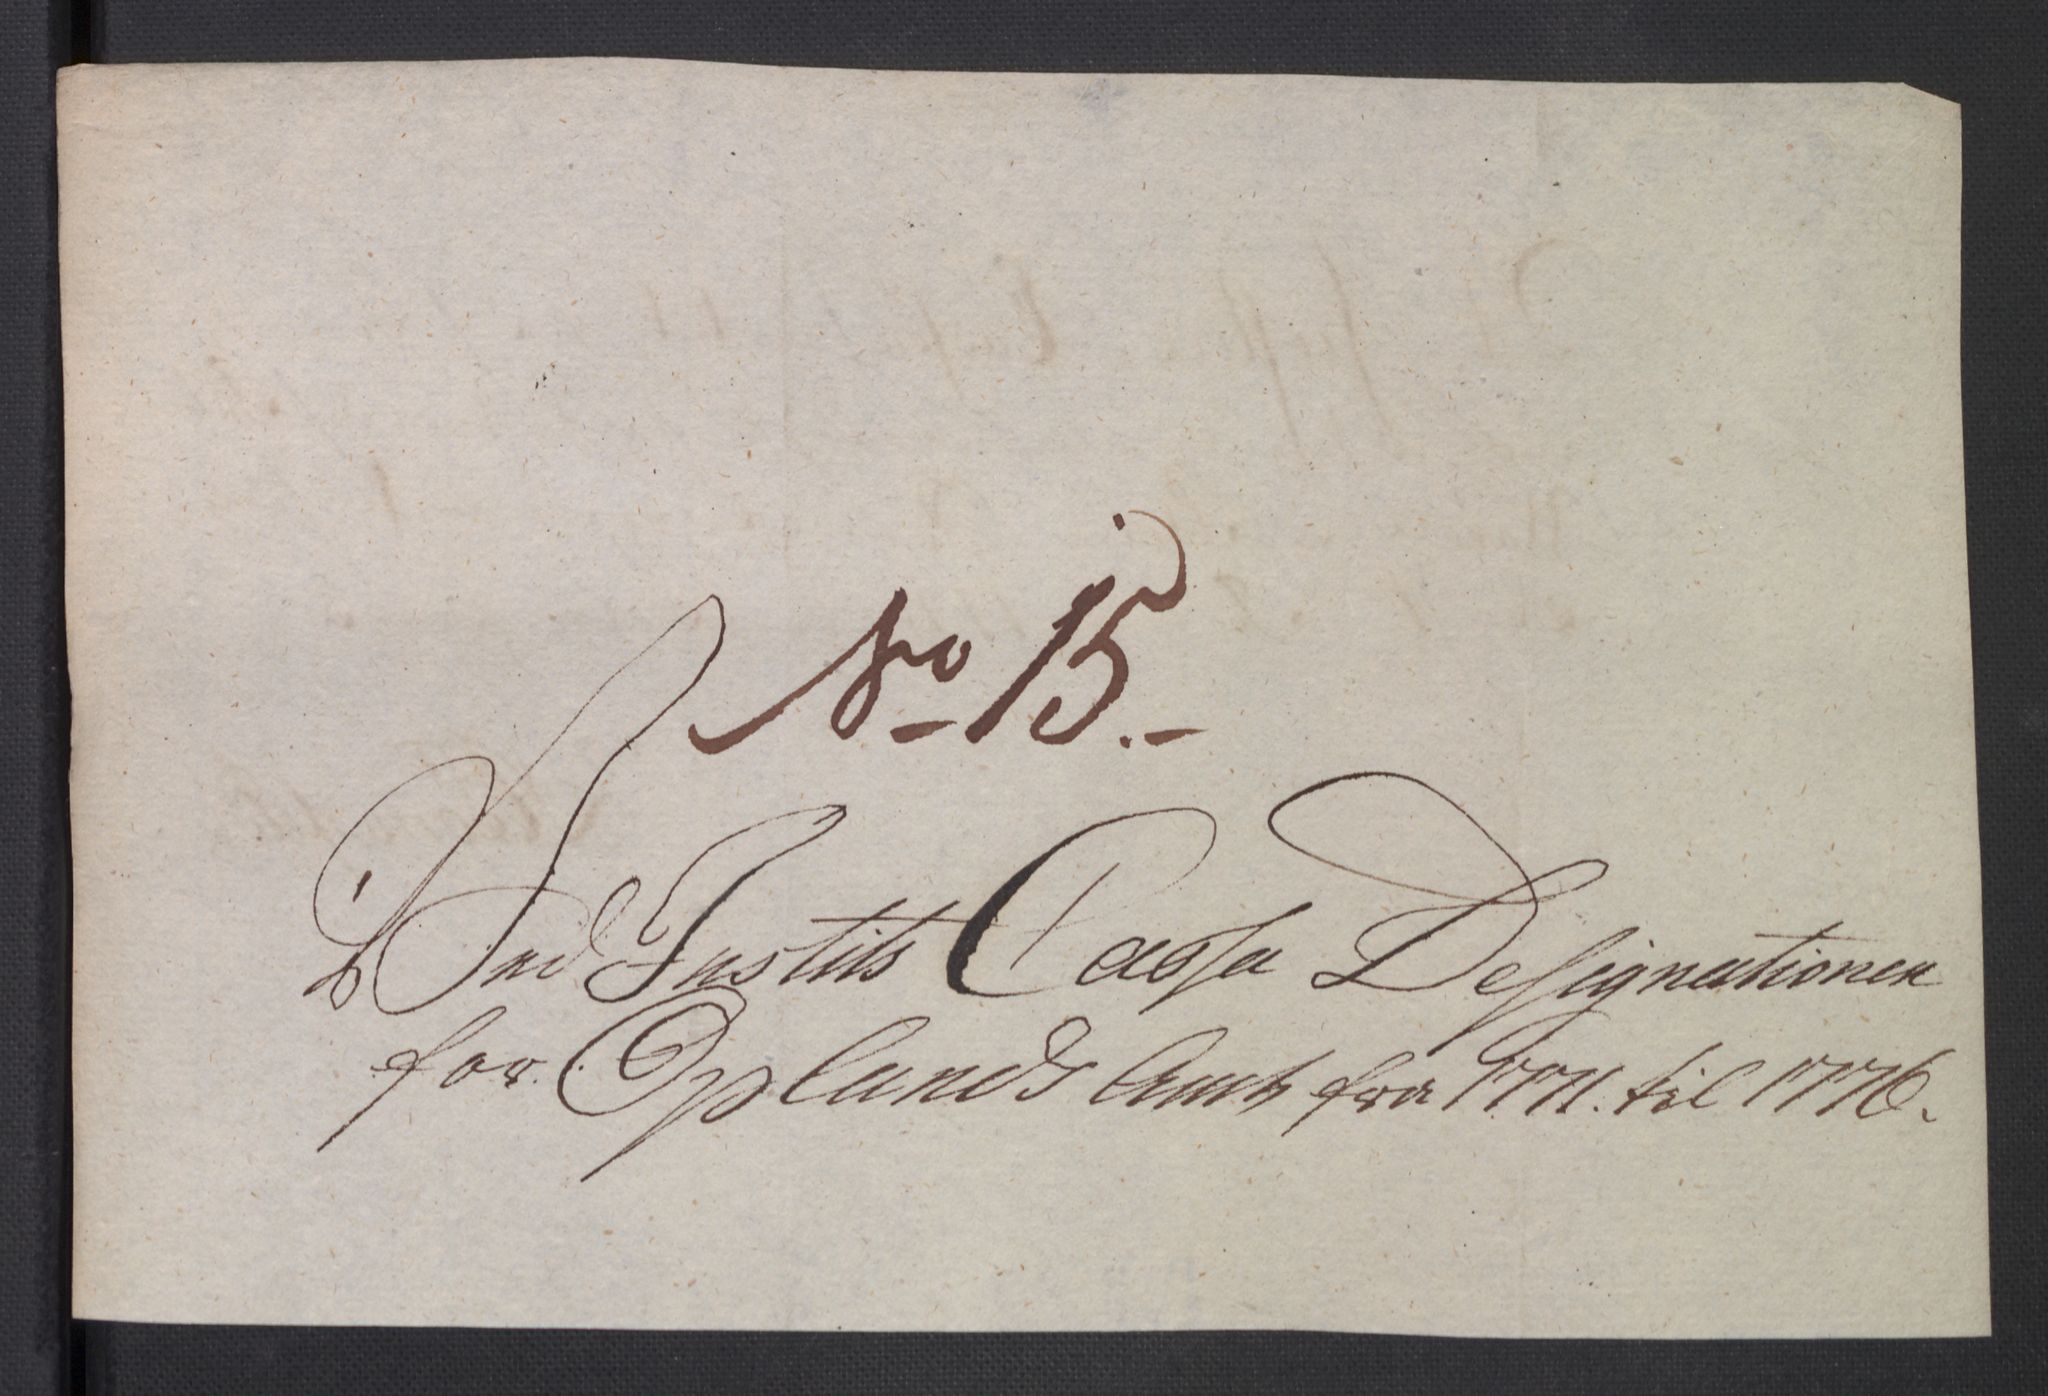 No 15.
Justits Cassa Designationen
for Oplands Amt fra 1771. til 1776.